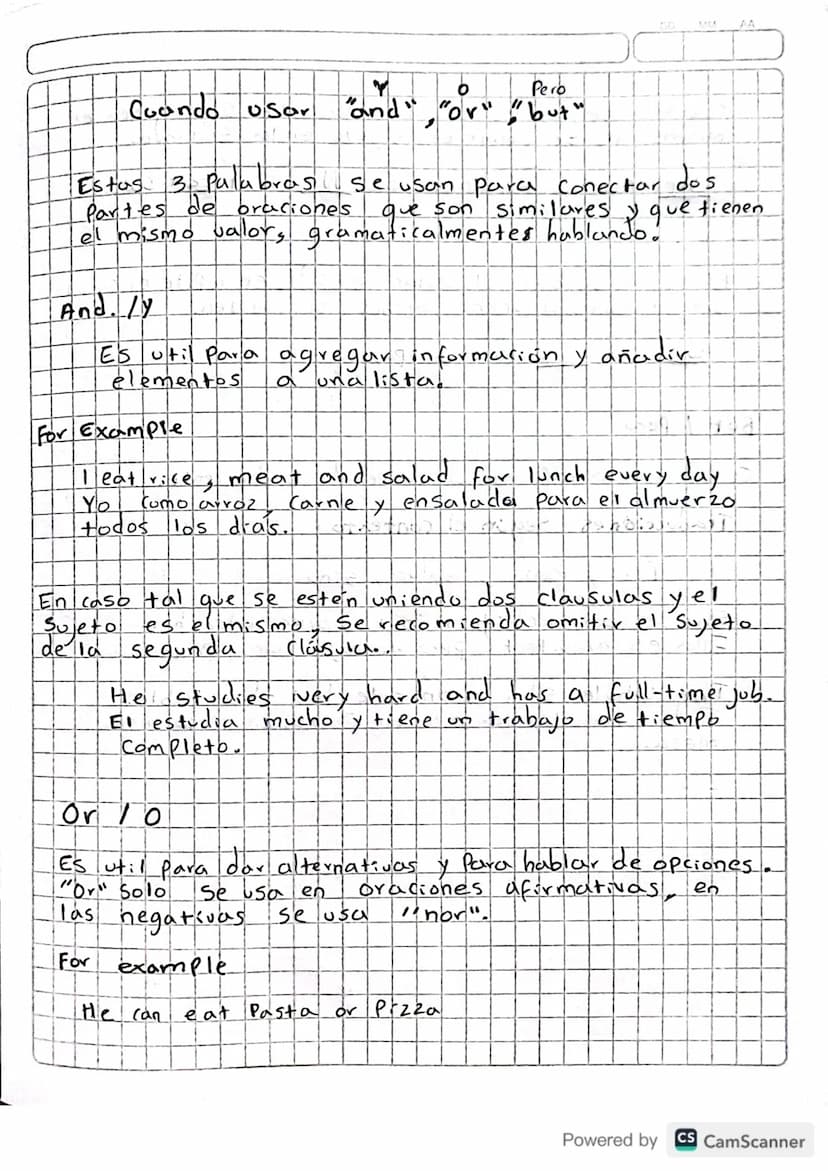 DD MM AA
Y O Pero
Cuando usar "and", "or", "but"
Estas 3 palabras se usan para conectar dos
partes de oraciones que son similares y que tienen
el mismo valor, gramaticalmentes hablando.
And. / y
Es util para agregar información y añadir
elementos a una lista.
For Example
I eat rice, meat and salad for lunch every day
Yo como arroz, carne y ensalada para el almuerzo
todos los días.
En caso tal que se estén uniendo dos clausulas y el
Sujeto es el mismo, se recomienda omitir el sujeto
de la segunda cláusula.
He studies very hard and has a full-time job.
El estudia mucho y tiene un trabajo de tiempo
completo.
Or / O
Es util para dar alternativas y para hablar de opciones.
"Or" solo se usa en oraciones afirmativas, en
las negativas se usa "nor".
For example
He can eat Pasta or Pizza
Powered by CS CamScanner